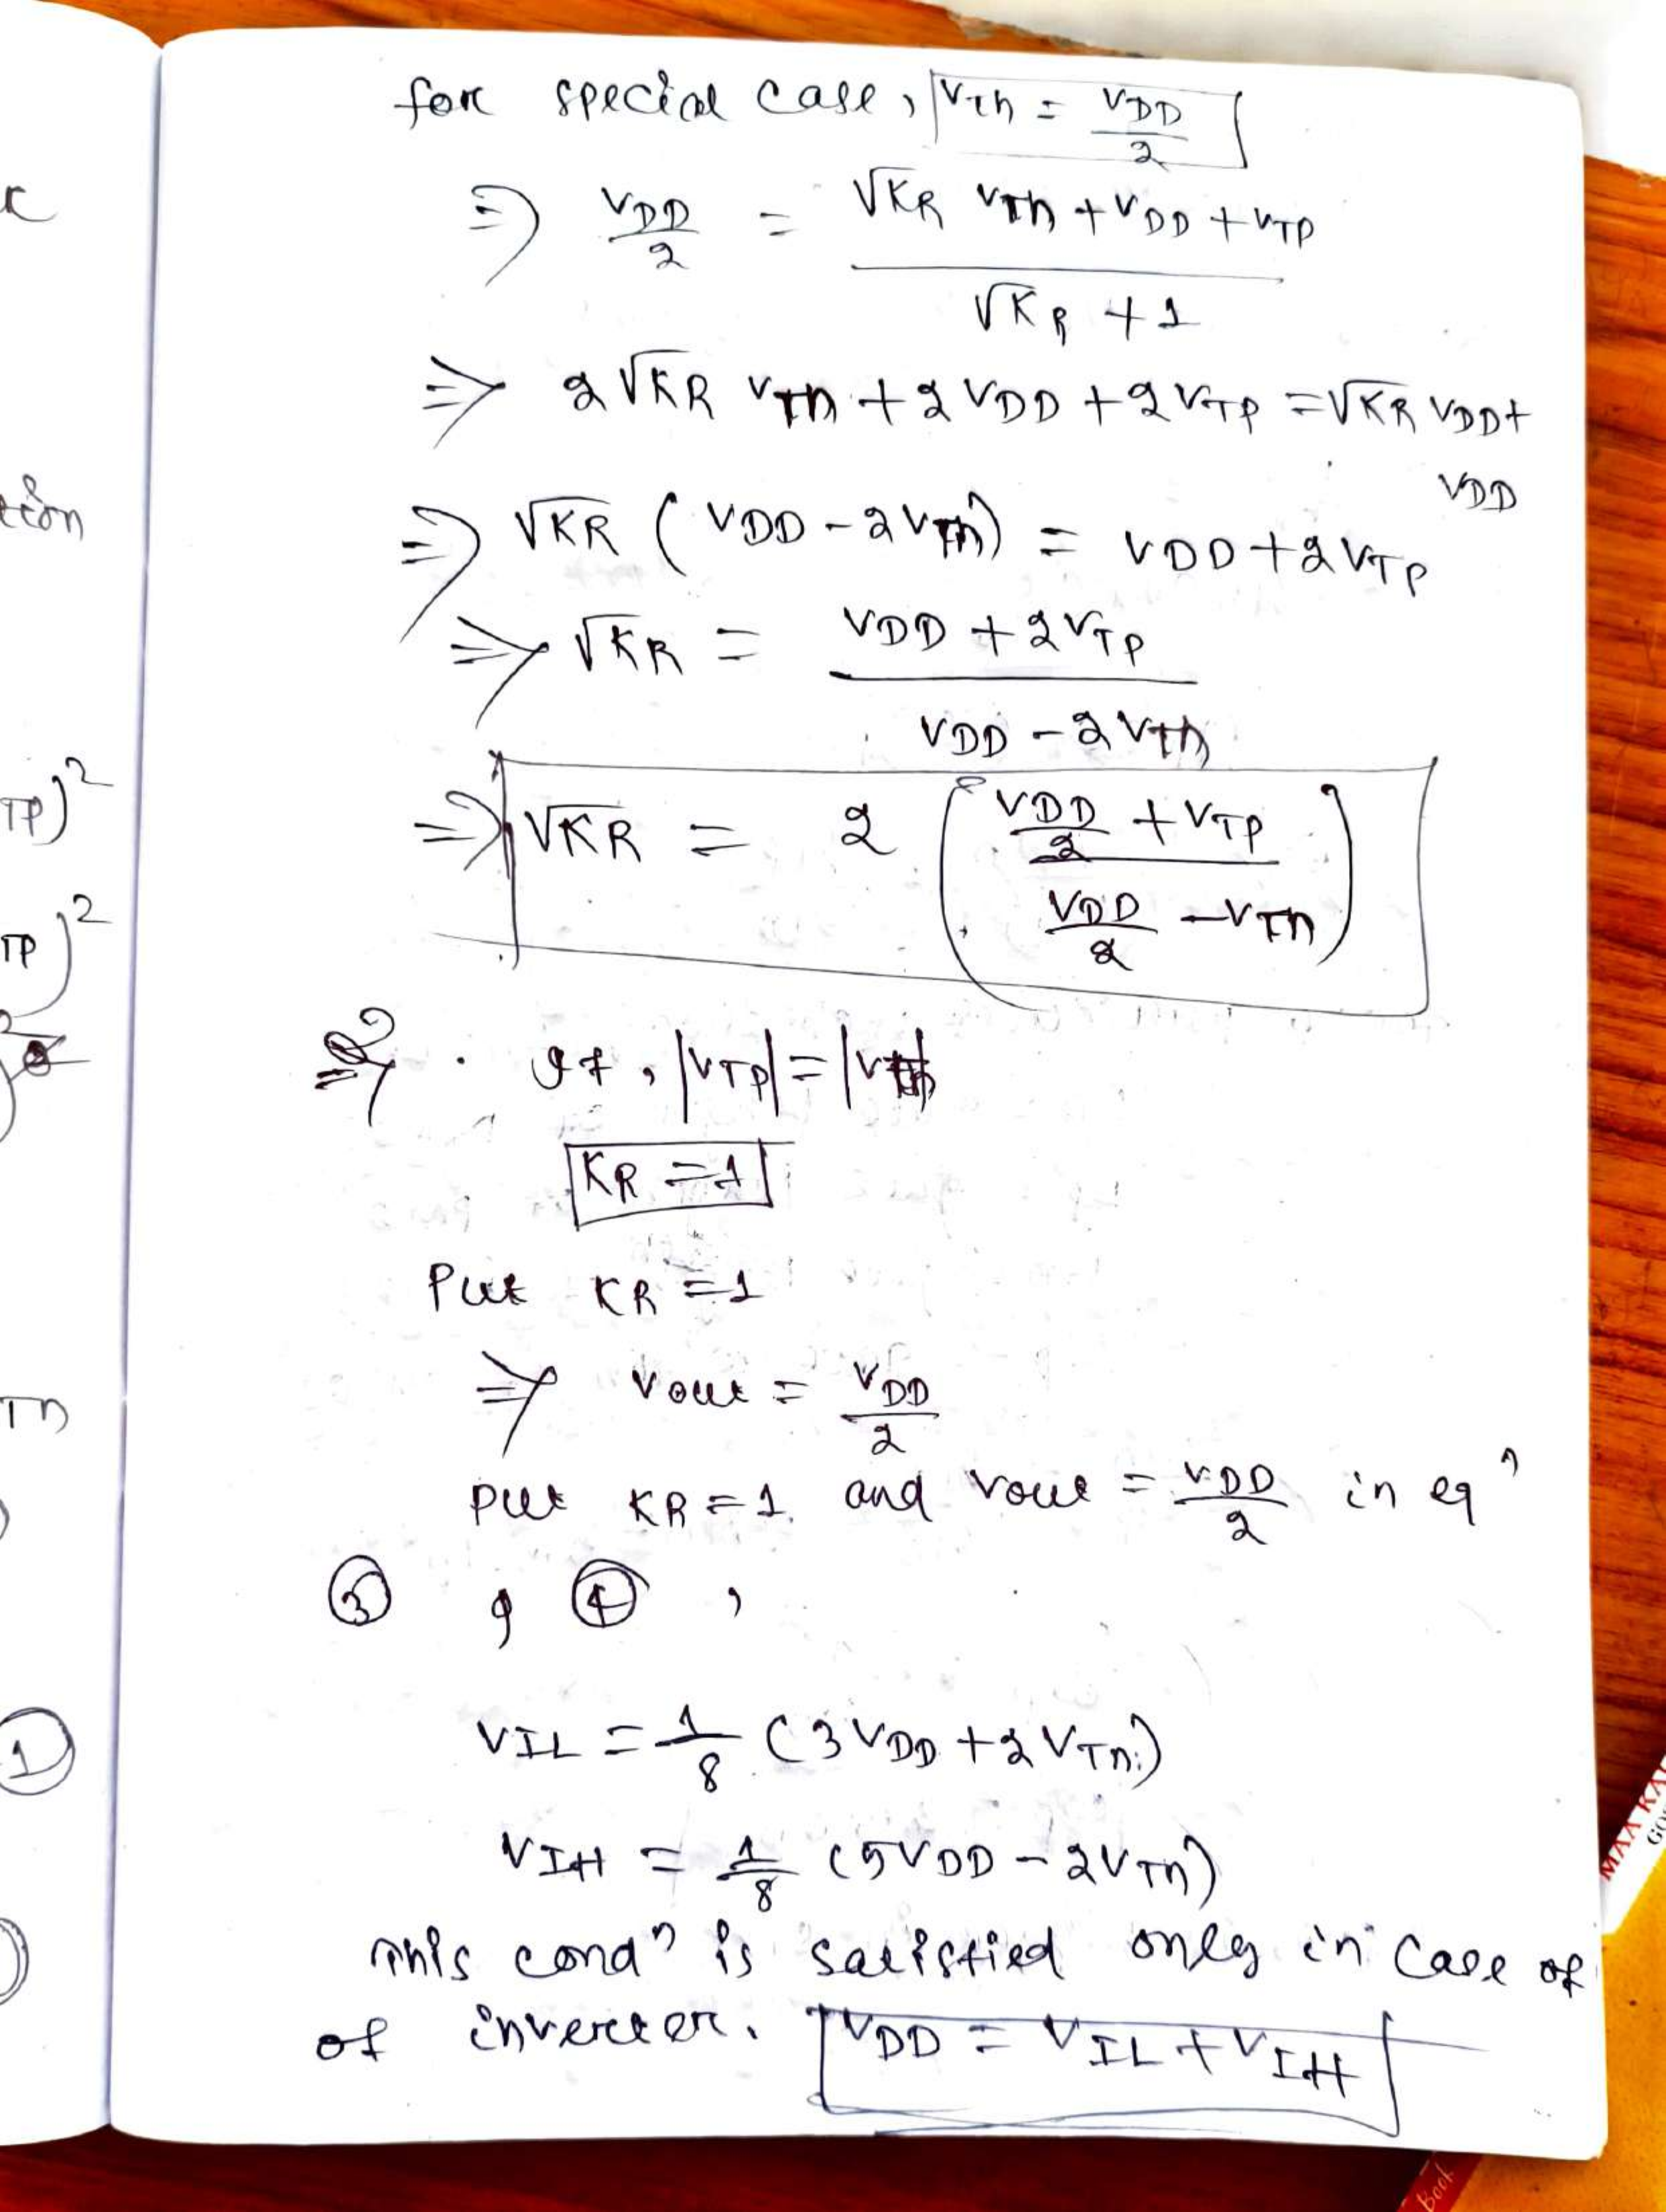 for special case, Vth = VDD/2
⇒ VDD/2 = (√KR VTn + VDD + VTP) / (√KR + 1)
⇒ 2√KR VTn + 2VDD + 2VTP = √KR VDD +
VDD
⇒ √KR (VDD - 2VTn) = VDD + 2VTP
⇒ √KR = (VDD + 2VTP) / (VDD - 2VTn)
⇒ √KR = 2 ((VDD/2 + VTP) / (VDD/2 - VTn))
⇒ If, |VTP| = |VTn|
KR = 1
Put KR = 1
⇒ Vout = VDD/2
put KR = 1 and Vout = VDD/2 in eqⁿ
③ & ④,
VIL = 1/8 (3VDD + 2VTn)
VIH = 1/8 (5VDD - 2VTn)
This condⁿ is satisfied only in case of
of inverter. VDD = VIL + VIH
tion
TP)²
TP)²
Tn
①
MAA
Book